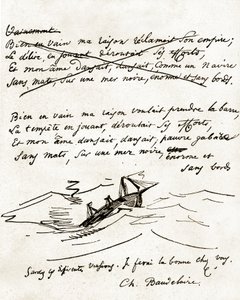 Vainement
Bien en vain ma raison réclamait son empire;
Le délire, en jouant déroutait ses efforts,
Et mon âme dansait, dansait, comme un Navire
Sans mats, sur une mer noire, énorme et sans bords
Bien en vain ma raison voulait prendre la barre
La tempête en jouant, déroutait ses efforts,
Et mon âme dansait, dansait, pauvre gabarre
Sans mats, sur une mer noire, énorme et
sans bords
Je ferai la bonne chez vous.
Ch. Baudelaire.